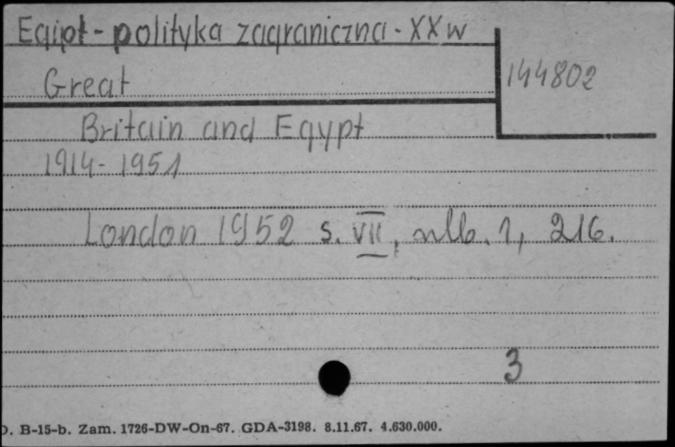 Egipt - polityka zagraniczna - XX w
144802
Great
Britain and Egypt
1914 - 1951
London 1952 s. VII, nlb. 1, 216.
3
D. B-15-b. Zam. 1726-DW-On-67. GDA-3198. 8.11.67. 4.630.000.